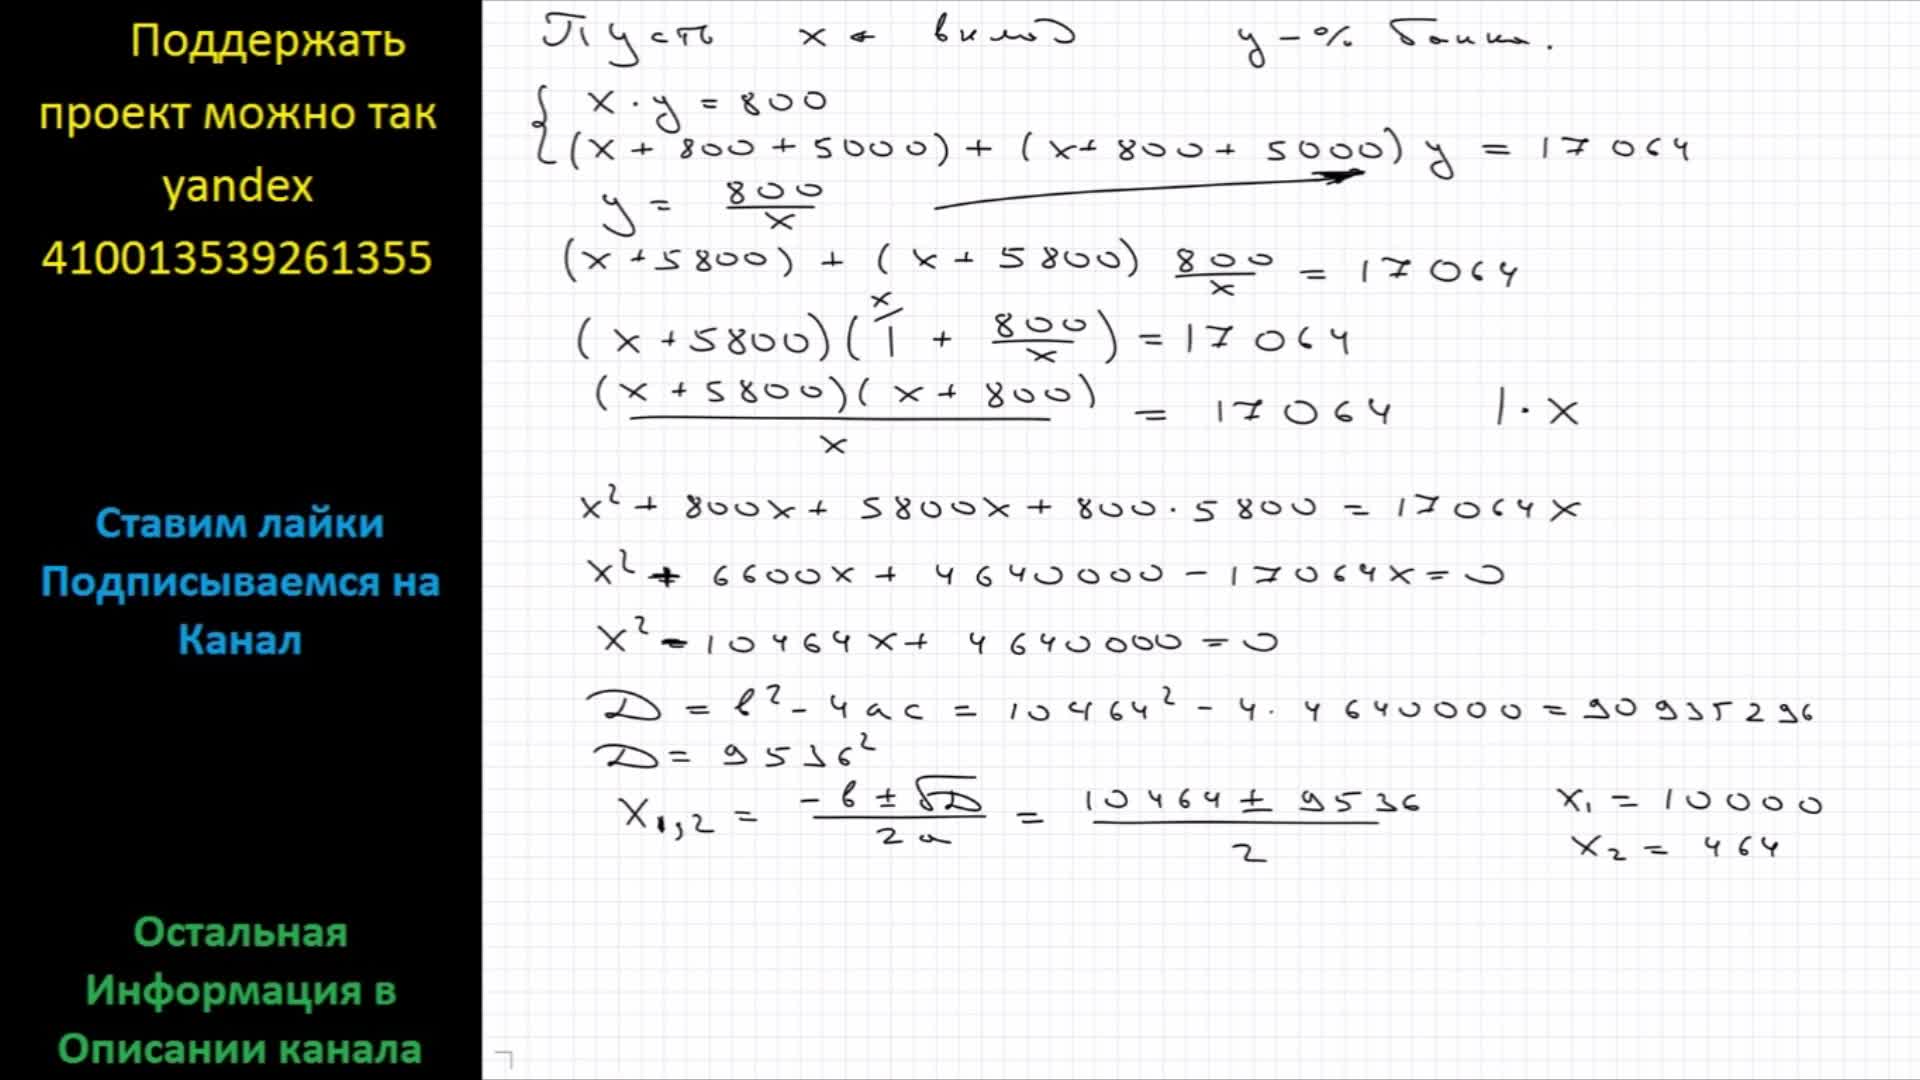 Поддержать
проект можно так
yandex
410013539261355
Ставим лайки
Подписываемся на
Канал
Остальная
Информация в
Описании канала
Пусть x - вклад y - % банка.
{ x · y = 800
(x + 800 + 5000) + (x + 800 + 5000) y = 17064
y = 800/x
(x + 5800) + (x + 5800) 800/x = 17064
(x + 5800)(1^x + 800/x) = 17064
(x + 5800)(x + 800)/x = 17064 | · x
x² + 800x + 5800x + 800 · 5800 = 17064x
x² + 6600x + 4640000 - 17064x = 0
x² - 10464x + 4640000 = 0
D = b² - 4ac = 10464² - 4 · 4640000 = 90935296
D = 9536²
x1,2 = (-b ± √D)/2a = (10464 ± 9536)/2 x1 = 10000
x2 = 464